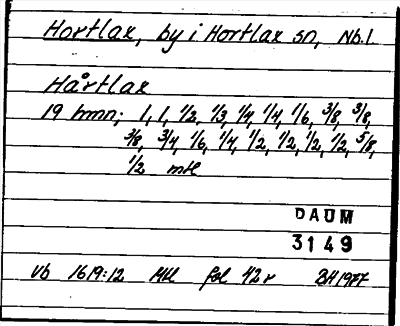 Hortlax, by i Hortlax sn, Nb.l.
Hårtlax
19 hmn; 1, 1, 1/2, 1/3, 1/4, 1/4, 1/6, 3/8, 3/8,
3/8, 3/4, 1/6, 1/4, 1/2, 1/2, 1/2, 1/2, 5/8,
1/2 mtl
DAUM
3149
Vb 1619:12 Mtl fol 42r BH 1977